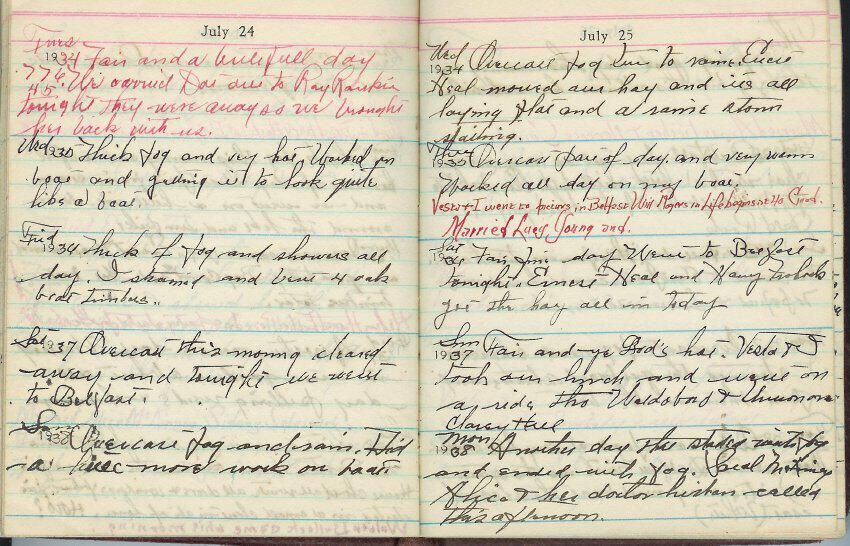 July 24
Tues
1934 Fair and a butifull day
We carried Dot over to Ray
tonight they were away so we brought
her back with us.
Wed 1935 Thick fog and very hot, Worked on
boat and getting it to look quite
like a boat.
Frid
1936 Thick of fog and showers all
day. I steamed and bent 4 oak
boat timbers..
Sat 1937 Overcast this morning cleared
away and tonight we went
to Belfast.
1938 Overcast fog and rain. Did
a more work on boat
July 25
Wed
1934 Overcast fog to raine. Ernest
Neal mowed our hay and its all
laying flat and a raine storm
1935 Overcast part of day, and very warm
Worked all day on my boat.
Vesta & I went to pictures in Belfast Will Rogers in Life begins at 40 Good.
Married Lucy Young and.
Sat
Fair fine day Went to Belfast
tonight. Ernest Neal and Harry
got the hay all in today
Sun
1937 Fair and ye God's hot. Vesta & I
took our lunch and went on
a ride thro Waldoboro &
Mon
1938 Another day
and ended with fog.
Alice & her doctor called
this afternoon.